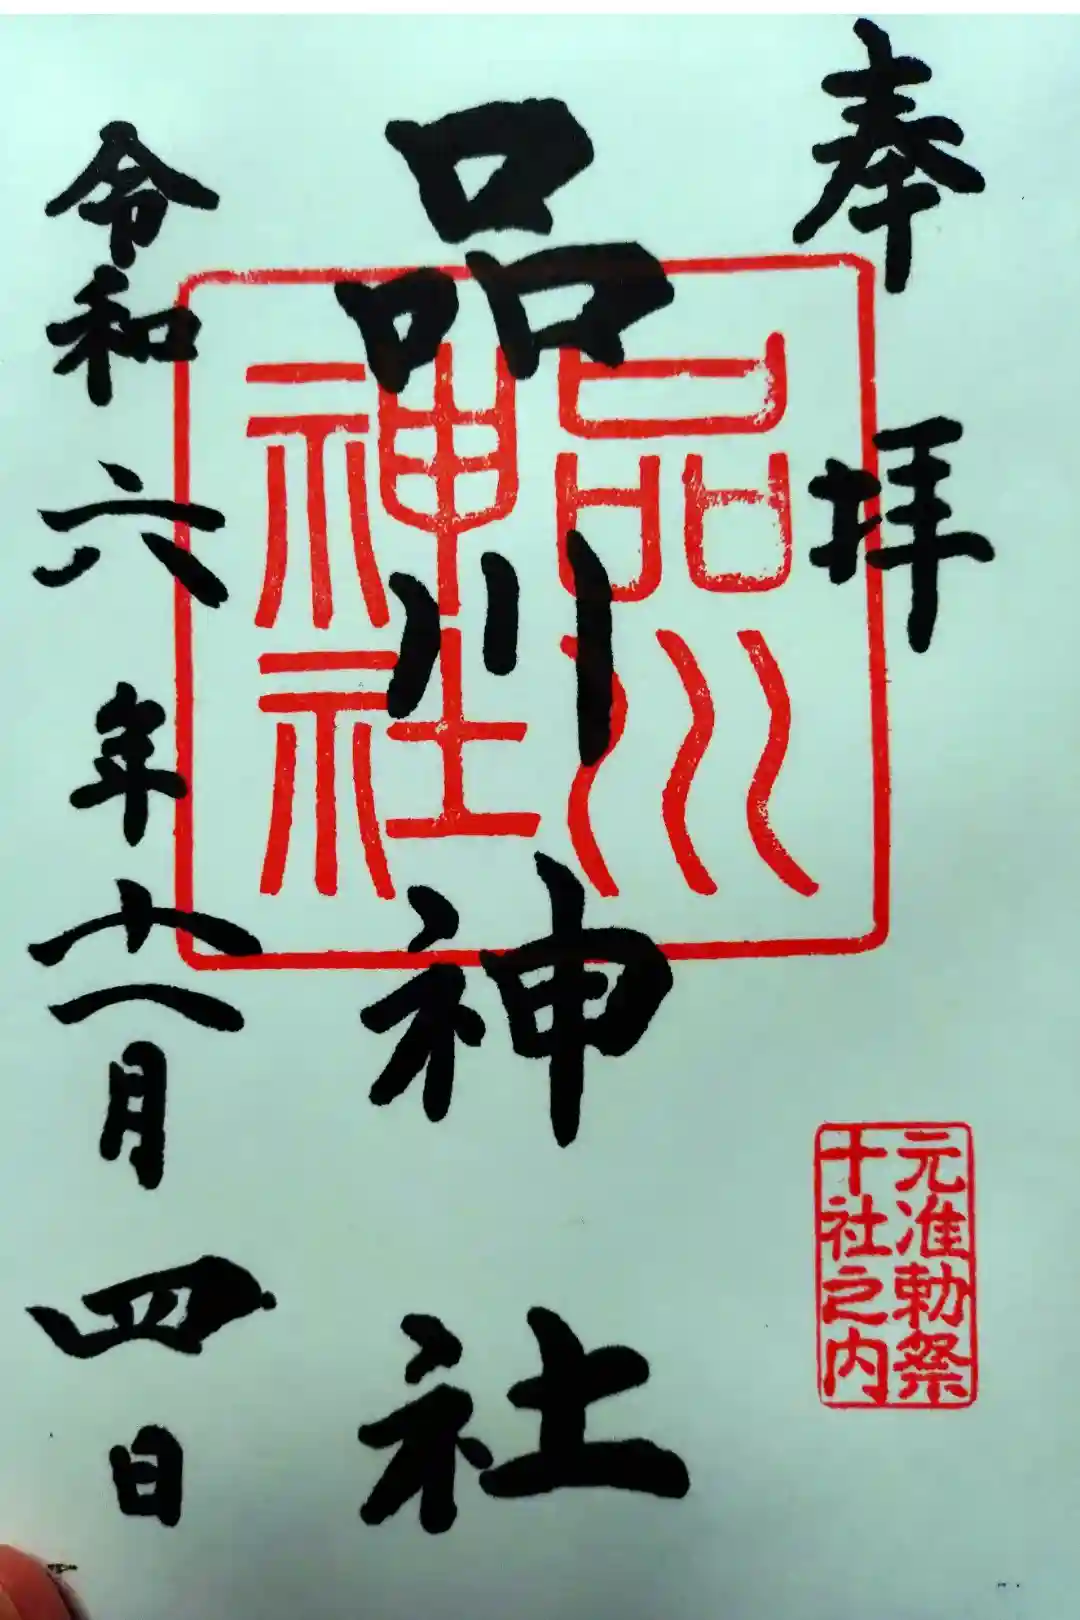 奉拝
元准勅祭
十社之内
品川神社
品川
神社
令和六年十一月四日